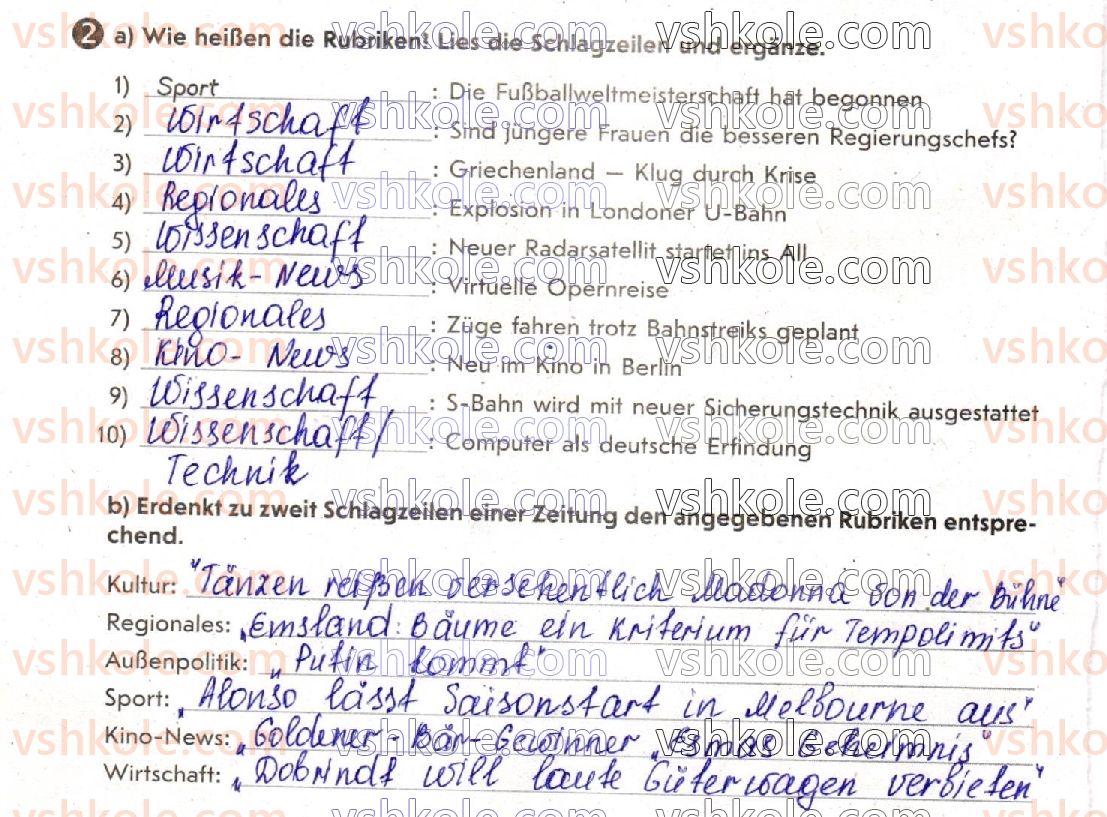 2 a) Wie heißen die Rubriken? Lies die Schlagzeilen und ergänze.
1) Sport : Die Fußballweltmeisterschaft hat begonnen
2) Wirtschaft : Sind jüngere Frauen die besseren Regierungschefs?
3) Wirtschaft : Griechenland – Klug durch Krise
4) Regionales : Explosion in Londoner U-Bahn
5) Wissenschaft : Neuer Radarsatellit startet ins All
6) Musik-News : Virtuelle Opernreise
7) Regionales : Züge fahren trotz Bahnstreiks geplant
8) Kino-News : Neu im Kino in Berlin
9) Wissenschaft : S-Bahn wird mit neuer Sicherungstechnik ausgestattet
10) Wissenschaft/ : Computer als deutsche Erfindung
Technik
b) Erdenkt zu zweit Schlagzeilen einer Zeitung den angegebenen Rubriken entspre-
chend.
Kultur: "Tänzen reißen versehentlich Madonna von der Bühne"
Regionales: „Emsland: Bäume ein Kriterium für Tempolimits"
Außenpolitik: „Putin kommt"
Sport: „Alonso lässt Saisonstart in Melbourne aus"
Kino-News: „Goldener-Bär-Gewinner „Esmas Geheimnis"
Wirtschaft: „Dobrindt will laute Güterwagen verbieten"
vshkole.com